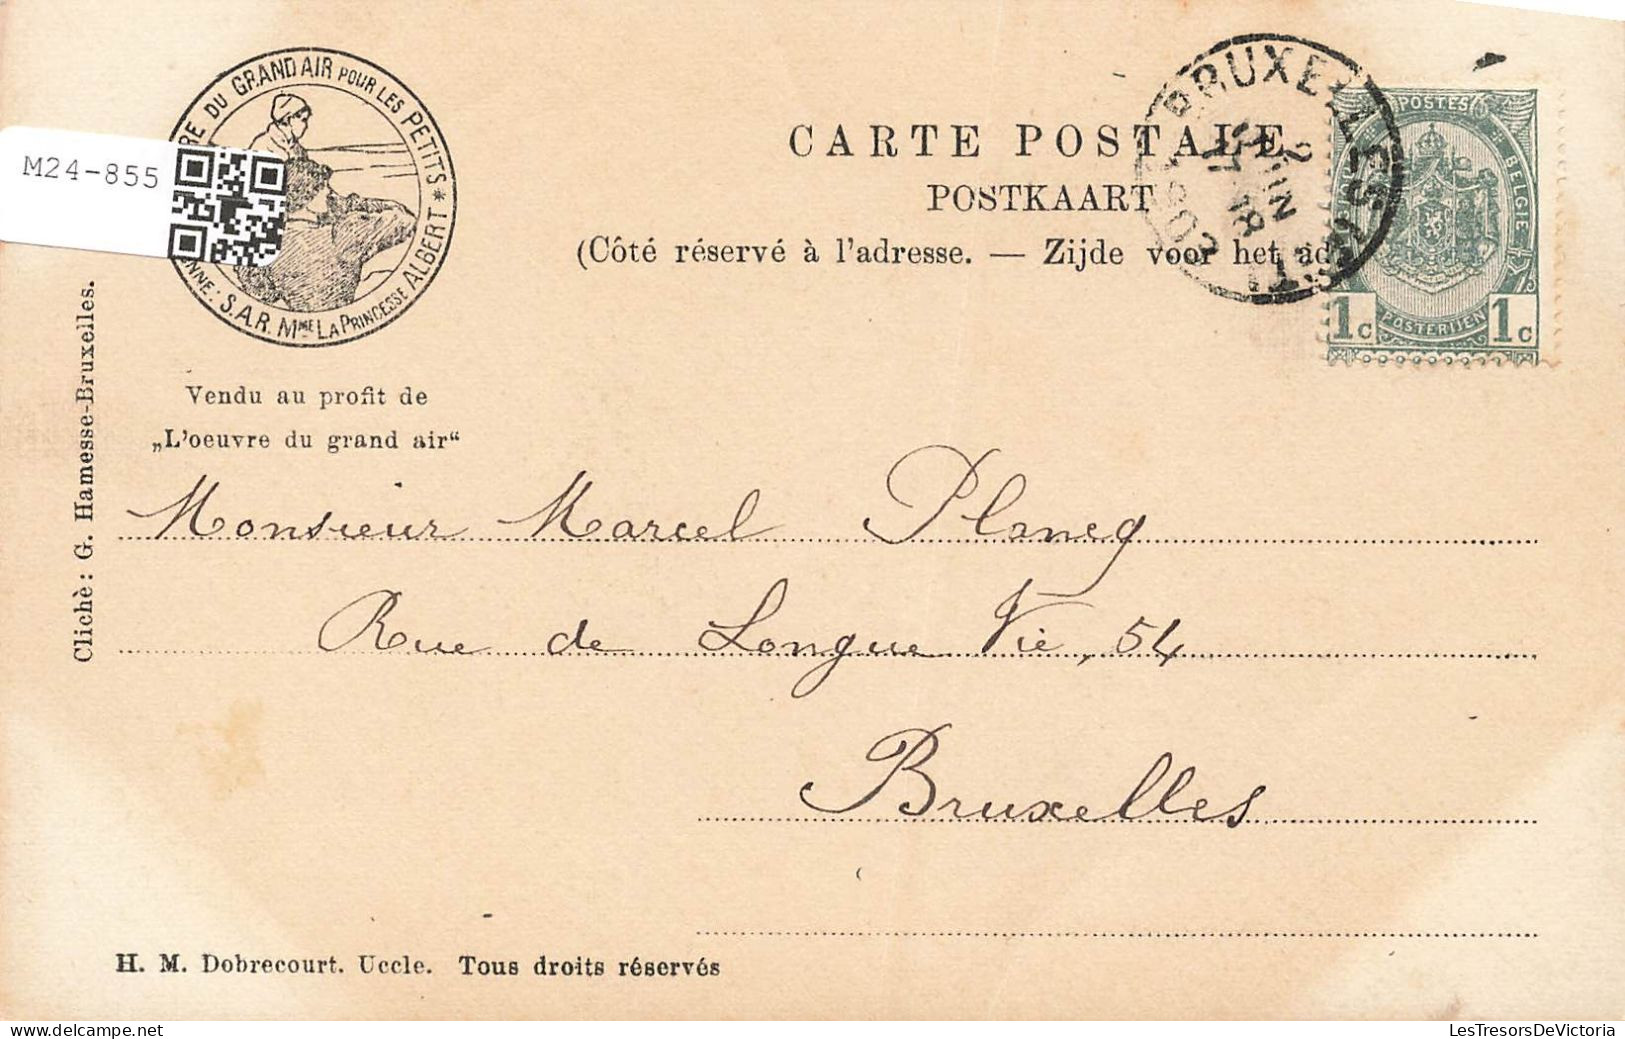 M24-855
DU GRAND AIR POUR LES PETITS * S.A.R. MME LA PRINCESSE ALBERT
Vendu au profit de
„L'oeuvre du grand air“
Clichè: G. Hamesse-Bruxelles.
CARTE POSTALE
POSTKAART
(Côté réservé à l'adresse. — Zijde voor het ad
BRUXELLES
POSTES
BELGIE
1c POSTERIJEN 1c
Monsieur Marcel Plancq
Rue de Longue Vie, 54
Bruxelles
H. M. Dobrecourt. Uccle. Tous droits réservés
LesTresorsDeVictoria